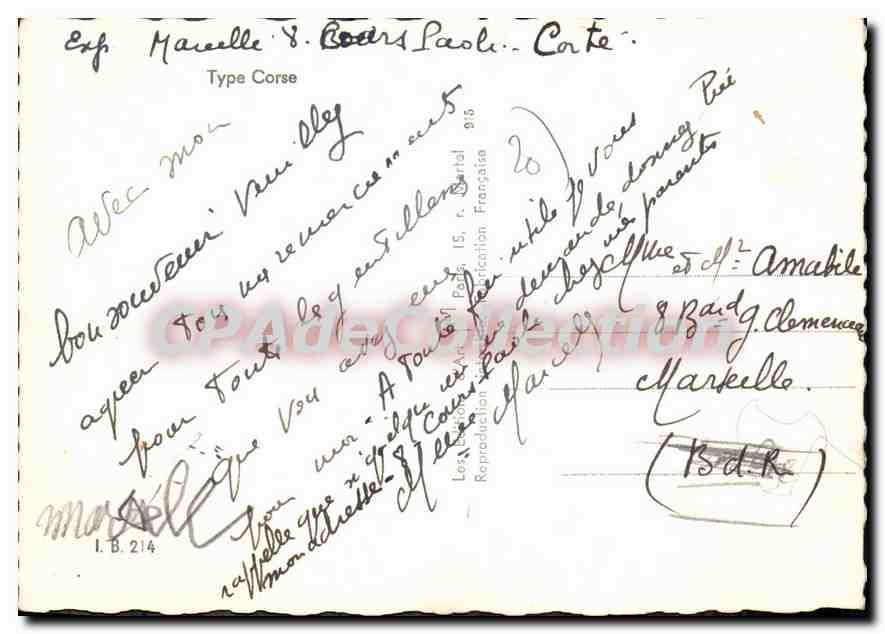 Exp Marcelle 8. Cours Paoli. Corte.
Type Corse
Avec mon
bon souvenir veuillez
agréer tous mes remerciements
pour toute les gentilless
que vou avez eue
pour moi - A toute fin utile je vous
rappelle que si quelqu'un me demande, donnez
mon adresse - 8 Cours Paoli chez mes parents
Mlle Marcelle
Marcelle
I. B. 214
20
Les Editions d'Art Paris, 15, r. Martel 915
Reproduction Fabrication Française
Mme et Mr Amabile
8 Bard g. Clemenceau
Marseille.
(B d. R)
CPAdeCollection